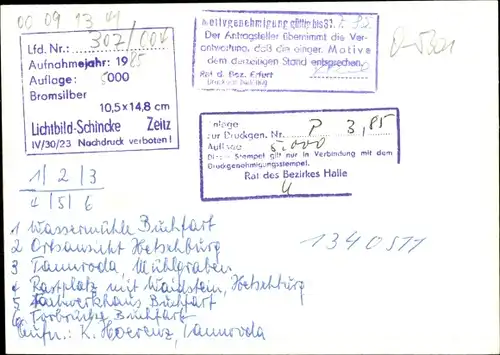 00 09 13 41
Lfd. Nr.: 307/004
Aufnahmejahr: 1985
Auflage: 5000
Bromsilber
10,5x14,8 cm
Lichtbild-Schincke Zeitz
IV/30/23 Nachdruck verboten!
Motivgenehmigung gültig bis
Der Antragsteller übernimmt die Ver-
antwortung, daß die einger. Motive
dem derzeitigen Stand entsprechen.
Rat d. Bez. Erfurt
Anlage
zur Druckgen. Nr. P 3,85
Auflage 5.000
Dieser Stempel gilt nur in Verbindung mit dem
Druckgenehmigungsstempel.
Rat des Bezirkes Halle
4
1/2/3
4/5/6
1 Wassermühle Buchfart
2 Ortsansicht Hetschburg
3 Tannroda, Mühlgraben
4 Rastplatz mit Waidstein, Hetschburg
5 Fachwerkhaus Buchfart
6 Torbrücke Buchfart
Aufn.: K. Hoerenz, Tannroda
1340511